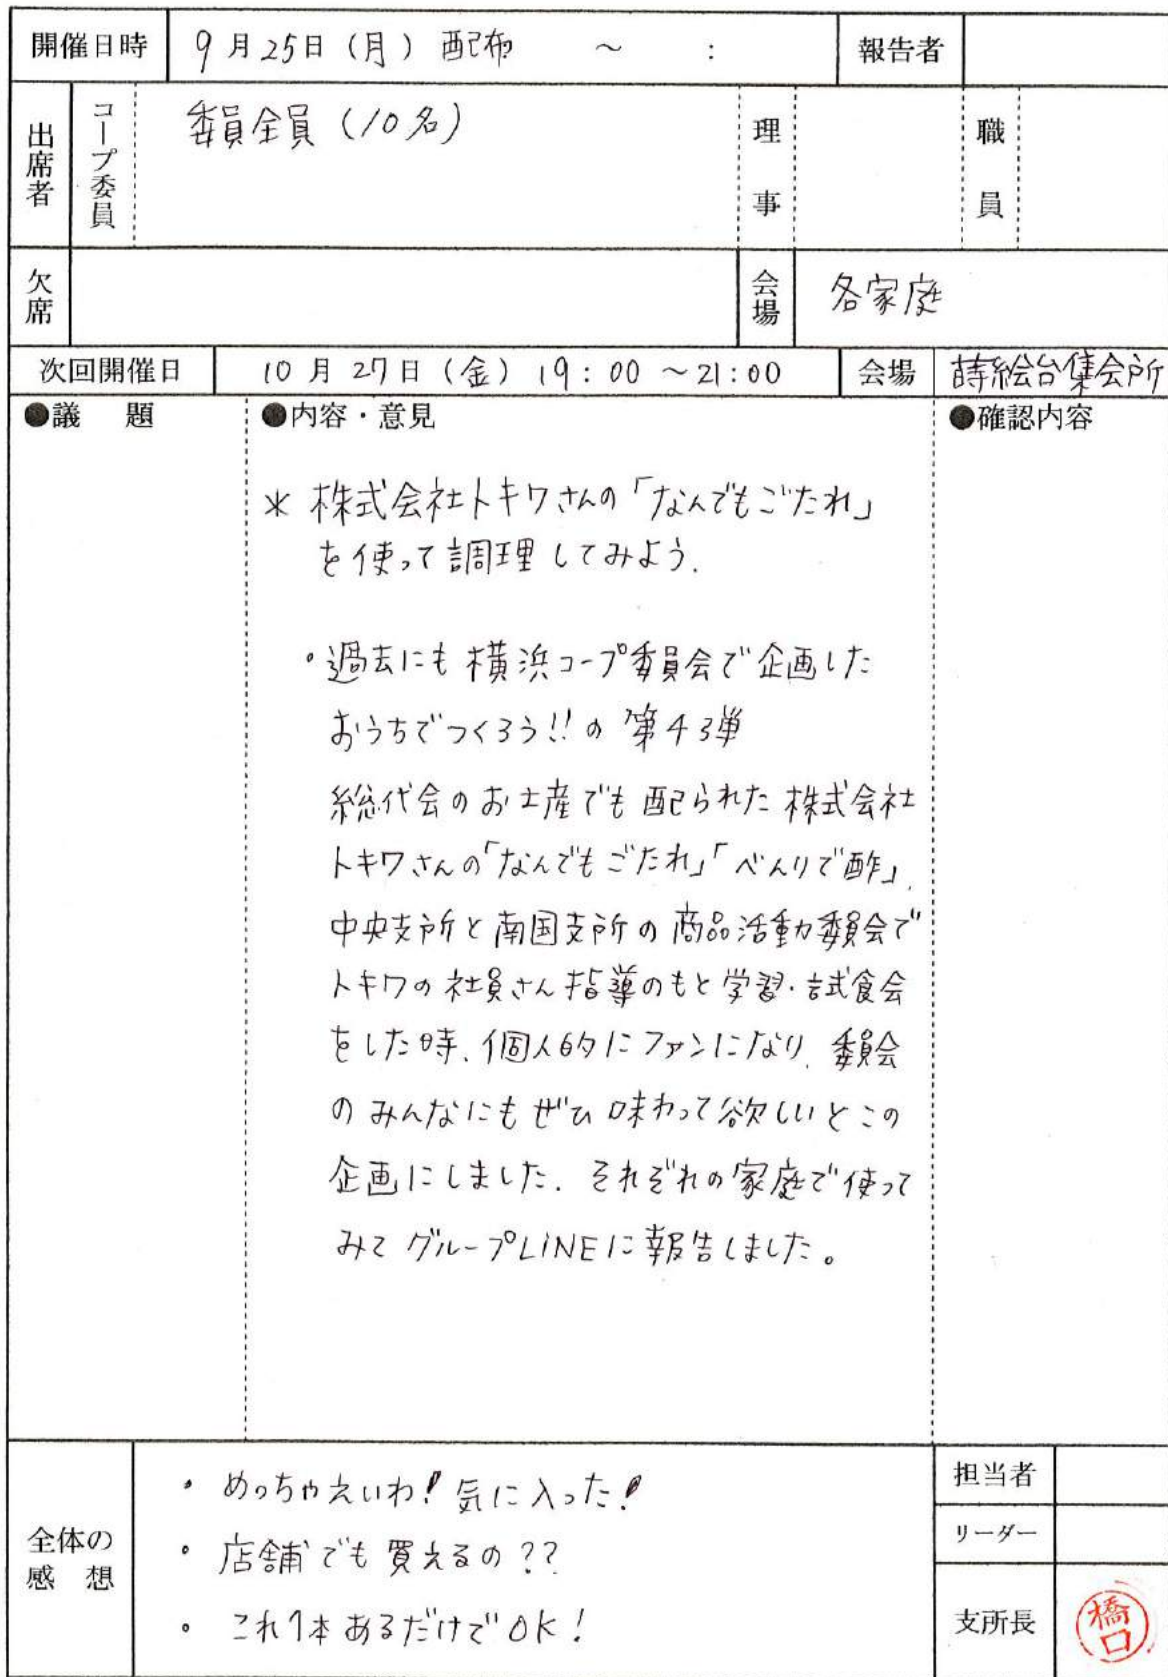 開催日時 9月25日(月)配布 ~ : 報告者
出席者 コープ委員 委員全員(10名) 理事 職員
欠席 会場 各家庭
次回開催日 10月27日(金)19:00~21:00 会場 蒔絵台集会所
●議題 ●内容・意見 ●確認内容
* 株式会社トキワさんの「なんでもごたれ」
を使って調理してみよう.
・過去にも横浜コープ委員会で企画した
おうちでつくろう!!の第43弾
総代会のお土産でも配られた株式会社
トキワさんの「なんでもごたれ」「べんりで酢」、
中央支所と南国支所の商品活動委員会で
トキワの社員さん指導のもと学習・試食会
をした時、個人的にファンになり、委員会
のみんなにもぜひ味わって欲しいとこの
企画にしました. それぞれの家庭で使って
みてグループLINEに報告しました。
全体の感想
・めっちゃえいわ!気に入った!
・店舗でも買えるの??
・これ1本あるだけでOK!
担当者
リーダー
支所長 橋口